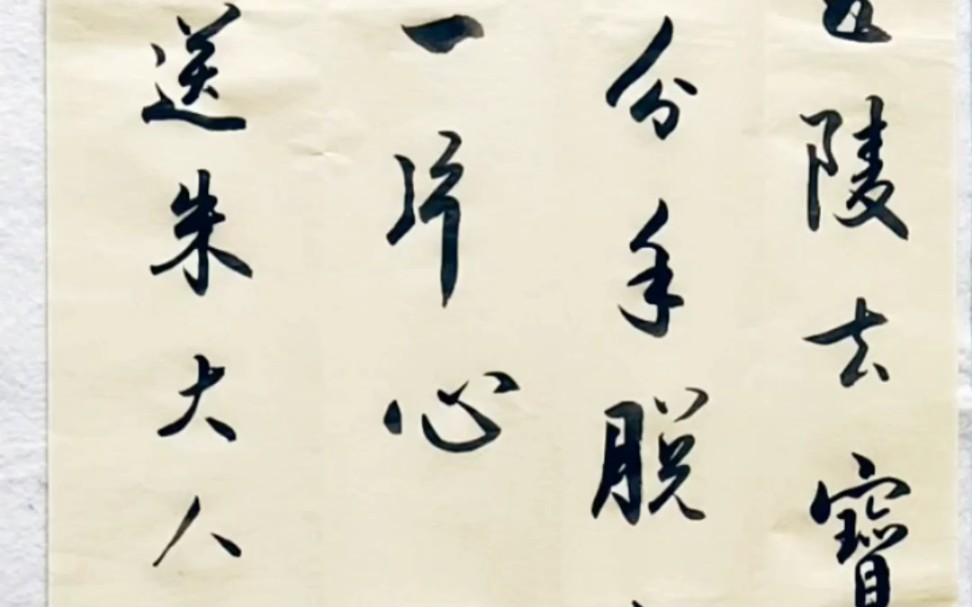 五陵去寶
分手脱
一片心
送朱大人